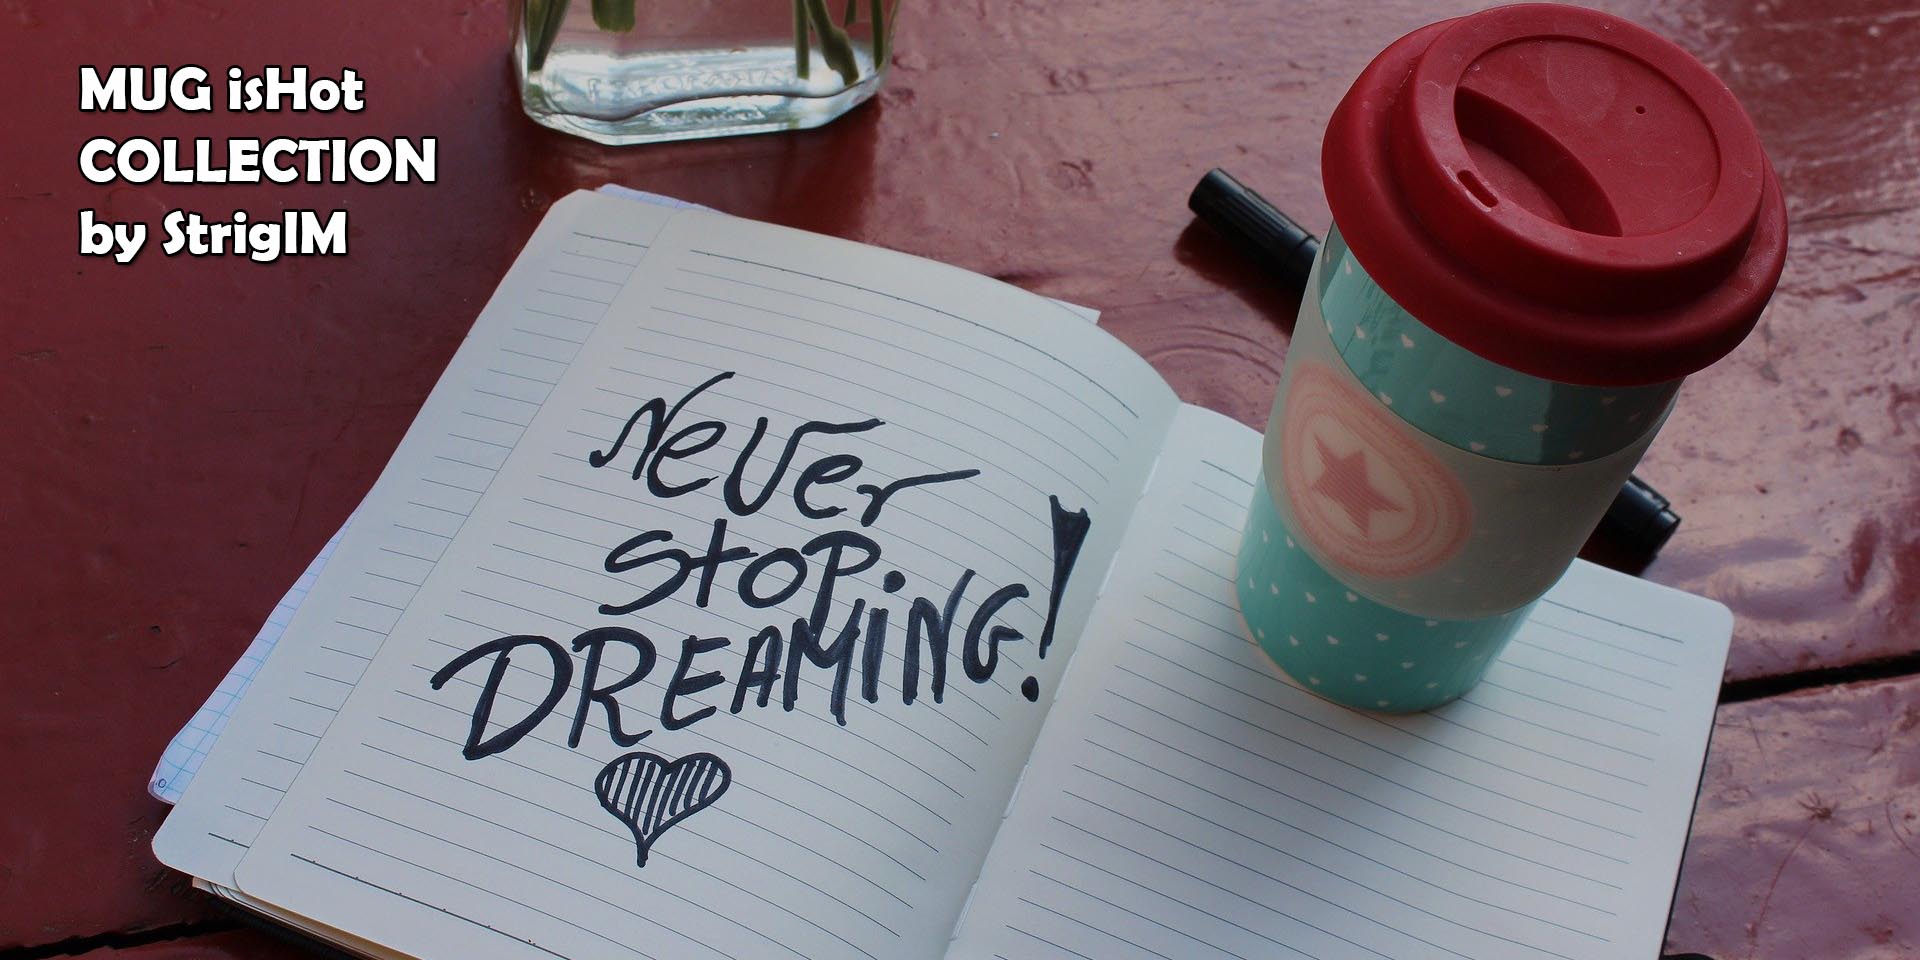 MUG isHot
COLLECTION
by StrigIM
Never
stop
DREAMiNG!